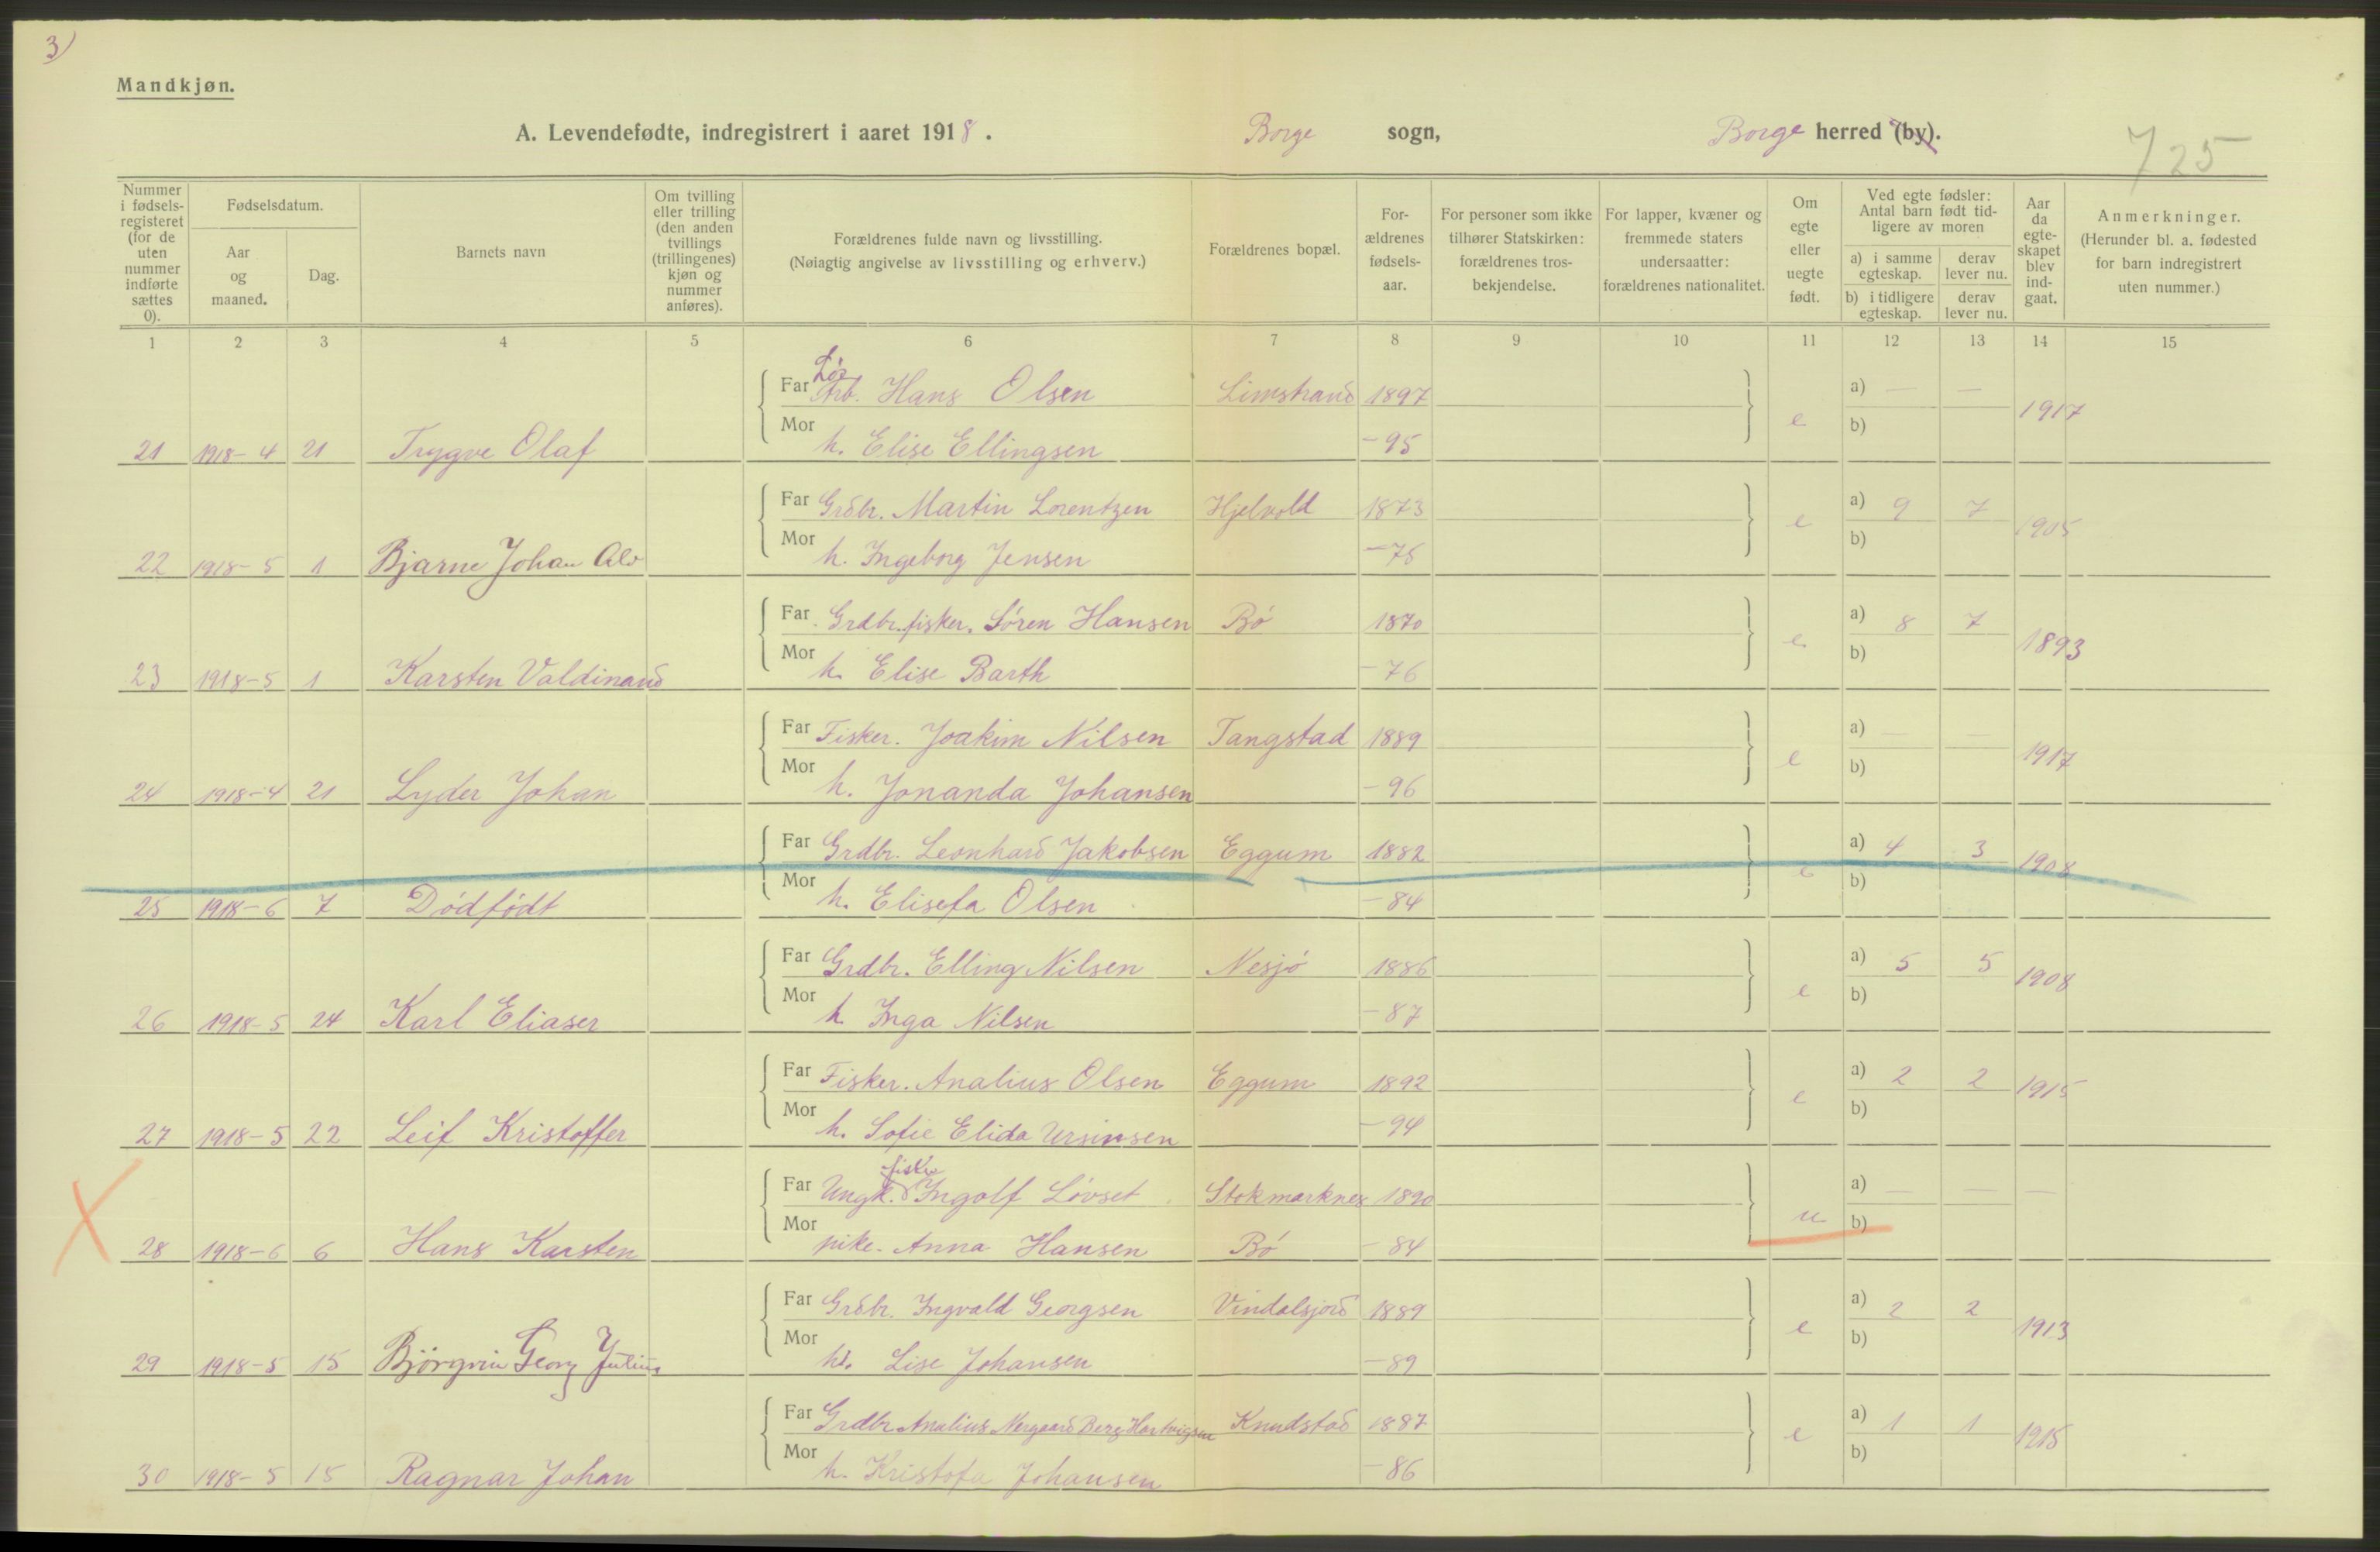 3)
Mandkjøn.
A. Levendefødte, indregistrert i aaret 1918. Borge sogn, Borge herred (by).
725
Nummer i fødsels-registeret (for de uten nummer indførte sættes 0).
Fødselsdatum.
Aar og maaned.
Dag.
Barnets navn
Om tvilling eller trilling (den anden tvillings (trillingenes) kjøn og nummer anføres).
Forældrenes fulde navn og livsstilling.
(Nøiagtig angivelse av livsstilling og erhverv.)
Forældrenes bopæl.
For-ældrenes fødsels-aar.
For personer som ikke tilhører Statskirken: forældrenes tros-bekjendelse.
For lapper, kvæner og fremmede staters undersaatter: forældrenes nationalitet.
Om egte eller uegte født.
Ved egte fødsler: Antal barn født tid-ligere av moren
a) i samme egteskap.
derav lever nu.
b) i tidligere egteskap.
derav lever nu.
Aar da egte-skapet blev ind-gaat.
Anmerkninger.
(Herunder bl. a. fødested for barn indregistrert uten nummer.)
1 2 3 4 5 6 7 8 9 10 11 12 13 14 15
Far Hans Olsen Limstrand 1897 a) — — 1917
21 1918-4 21 Trygve Olaf Mor h. Elise Ellingsen -95 e b)
Far Grdbr. Martin Lorentzen Hjelvold 1873 a) 9 7 1905
22 1918-5 1 Bjarne Johan Alv Mor h. Ingeborg Jensen e b)
Far Grdbr. fisker. Sören Hansen Bö 1870 a) 8 7 1893
23 1918-5 1 Karsten Valdinand Mor h. Elise Barth -76 e b)
Far Fisker. Joakim Nilsen Tangstad 1889 a) — — 1917
24 1918-4 21 Lyder Johan Mor h. Jonanda Johansen -96 e b)
Far Grdbr. Leonhard Jakobsen Eggum 1882 a) 4 3 1908
25 1918-6 7 Dödfödt Mor h. Elisefa Olsen -84 e b)
Far Grdbr. Elling Nilsen Nesjö 1886 a) 5 5 1908
26 1918-5 24 Karl Eliaser Mor h Inga Nilsen -87 e b)
Far Fisker. Analius Olsen Eggum 1892 a) 2 2 1915
27 1918-5 22 Leif Kristoffer Mor h. Sofie Elida Ursinsen -94 e b)
fisker
Far Ungk. Ingolf Lövset Stokmarknes 1890 a) — — —
28 1918-6 6 Hans Karsten Mor pike. Anna Hansen Bö -84 u b)
Far Grdbr. Ingvald Georgsen Vindalsjord 1889 a) 2 2 1913
29 1918-5 15 Bjørgvin Georg Julius Mor h. Lise Johansen -89 e b)
Far Grdbr Analius Nergaard Berg Hartvigsen Knudstad 1887 a) 1 1 1915
30 1918-5 15 Ragnar Johan Mor h. Kristofa Johansen -86 e b)